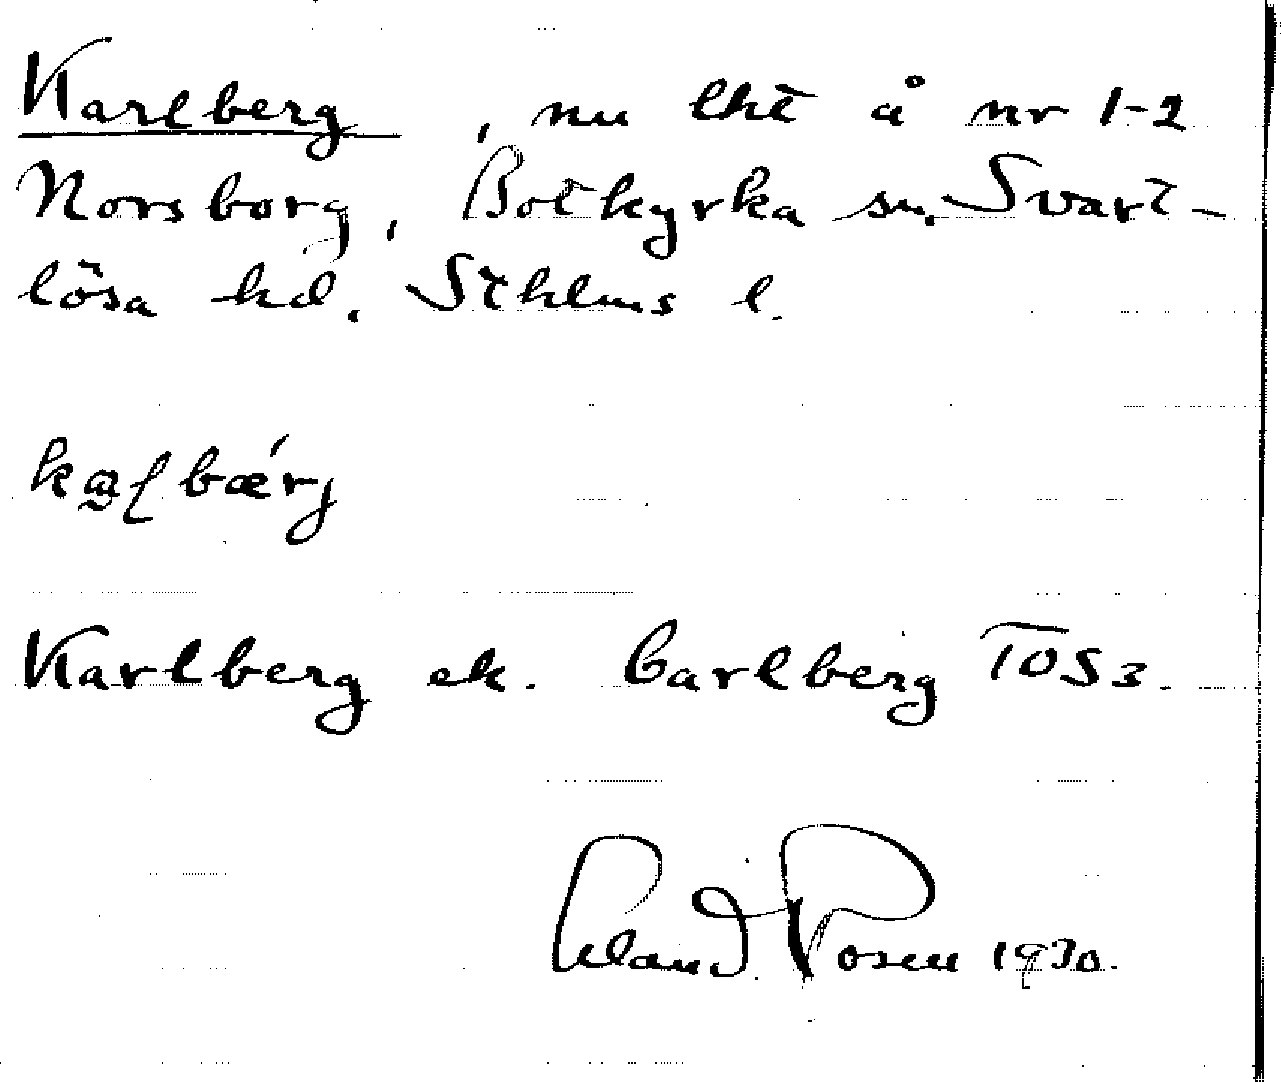 Karlberg, nu lht å nr 1-2
Norsborg, Botkyrka sn. Svart-
lösa hd. Sthlms l.
kaɭbǽrj
Karlberg ek. Carlberg TOS 3.
Rosen 1930.